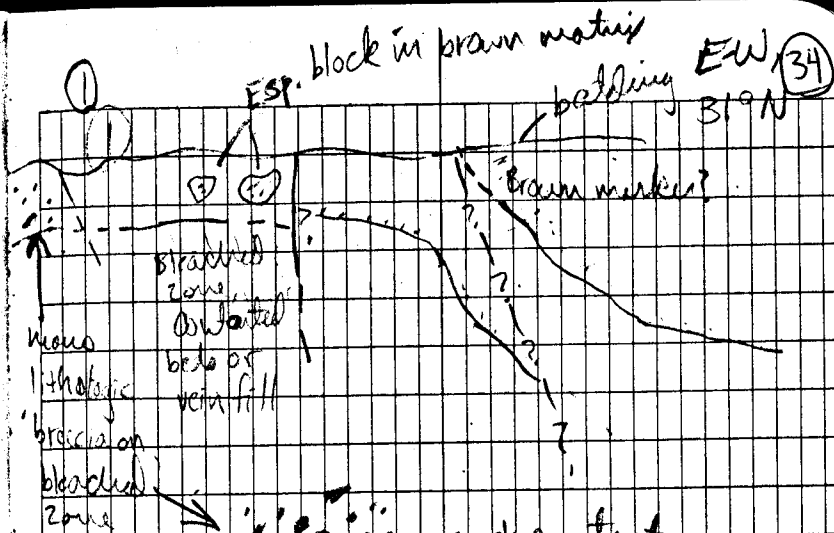 ①
ESP. block in brown matrix
E-W, ㉞
31° N
bedding
Brown marker?
?
?
?
?
?
Bleached
zone,
Contorted
beds or
vein fill
mono
lithologic
breccia on
bleached
zone